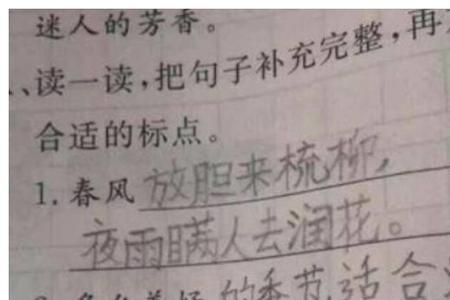 迷人的芳香。
、读一读,把句子补充完整,再
合适的标点。
1. 春风 放胆来梳柳,
夜雨瞒人去润花。
的季节适合